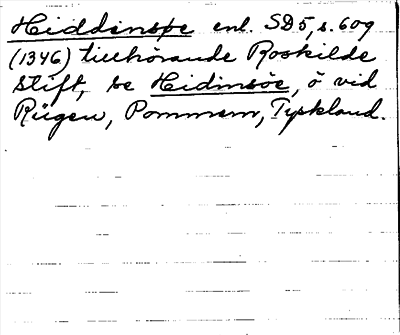 Hiddinspe enl. SD5, s. 609
(1346) tillhörande Roskilde
stift, se Hidinsöe, ö vid
Rügen, Pommern, Tyskland.